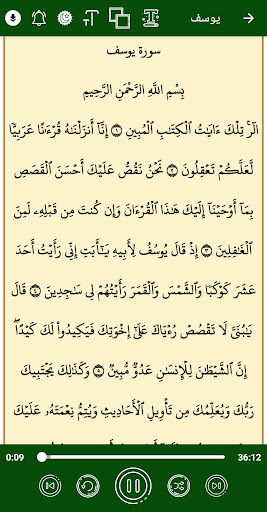 يوسف
سورة يوسف
بِسْمِ اللَّهِ الرَّحْمَٰنِ الرَّحِيمِ
الٓرۚ تِلْكَ ءَايَٰتُ ٱلْكِتَٰبِ ٱلْمُبِينِ ١ إِنَّآ أَنزَلْنَٰهُ قُرْءَٰنًا عَرَبِيًّا
لَّعَلَّكُمْ تَعْقِلُونَ ٢ نَحْنُ نَقُصُّ عَلَيْكَ أَحْسَنَ ٱلْقَصَصِ
بِمَآ أَوْحَيْنَآ إِلَيْكَ هَٰذَا ٱلْقُرْءَانَ وَإِن كُنتَ مِن قَبْلِهِۦ لَمِنَ
ٱلْغَٰفِلِينَ ٣ إِذْ قَالَ يُوسُفُ لِأَبِيهِ يَٰٓأَبَتِ إِنِّي رَأَيْتُ أَحَدَ
عَشَرَ كَوْكَبًا وَٱلشَّمْسَ وَٱلْقَمَرَ رَأَيْتُهُمْ لِي سَٰجِدِينَ ٤ قَالَ
يَٰبُنَيَّ لَا تَقْصُصْ رُءْيَاكَ عَلَىٰٓ إِخْوَتِكَ فَيَكِيدُوا۟ لَكَ كَيْدًاۖ
إِنَّ ٱلشَّيْطَٰنَ لِلْإِنسَٰنِ عَدُوٌّ مُّبِينٌ ٥ وَكَذَٰلِكَ يَجْتَبِيكَ
رَبُّكَ وَيُعَلِّمُكَ مِن تَأْوِيلِ ٱلْأَحَادِيثِ وَيُتِمُّ نِعْمَتَهُۥ عَلَيْكَ
0:09 36:12